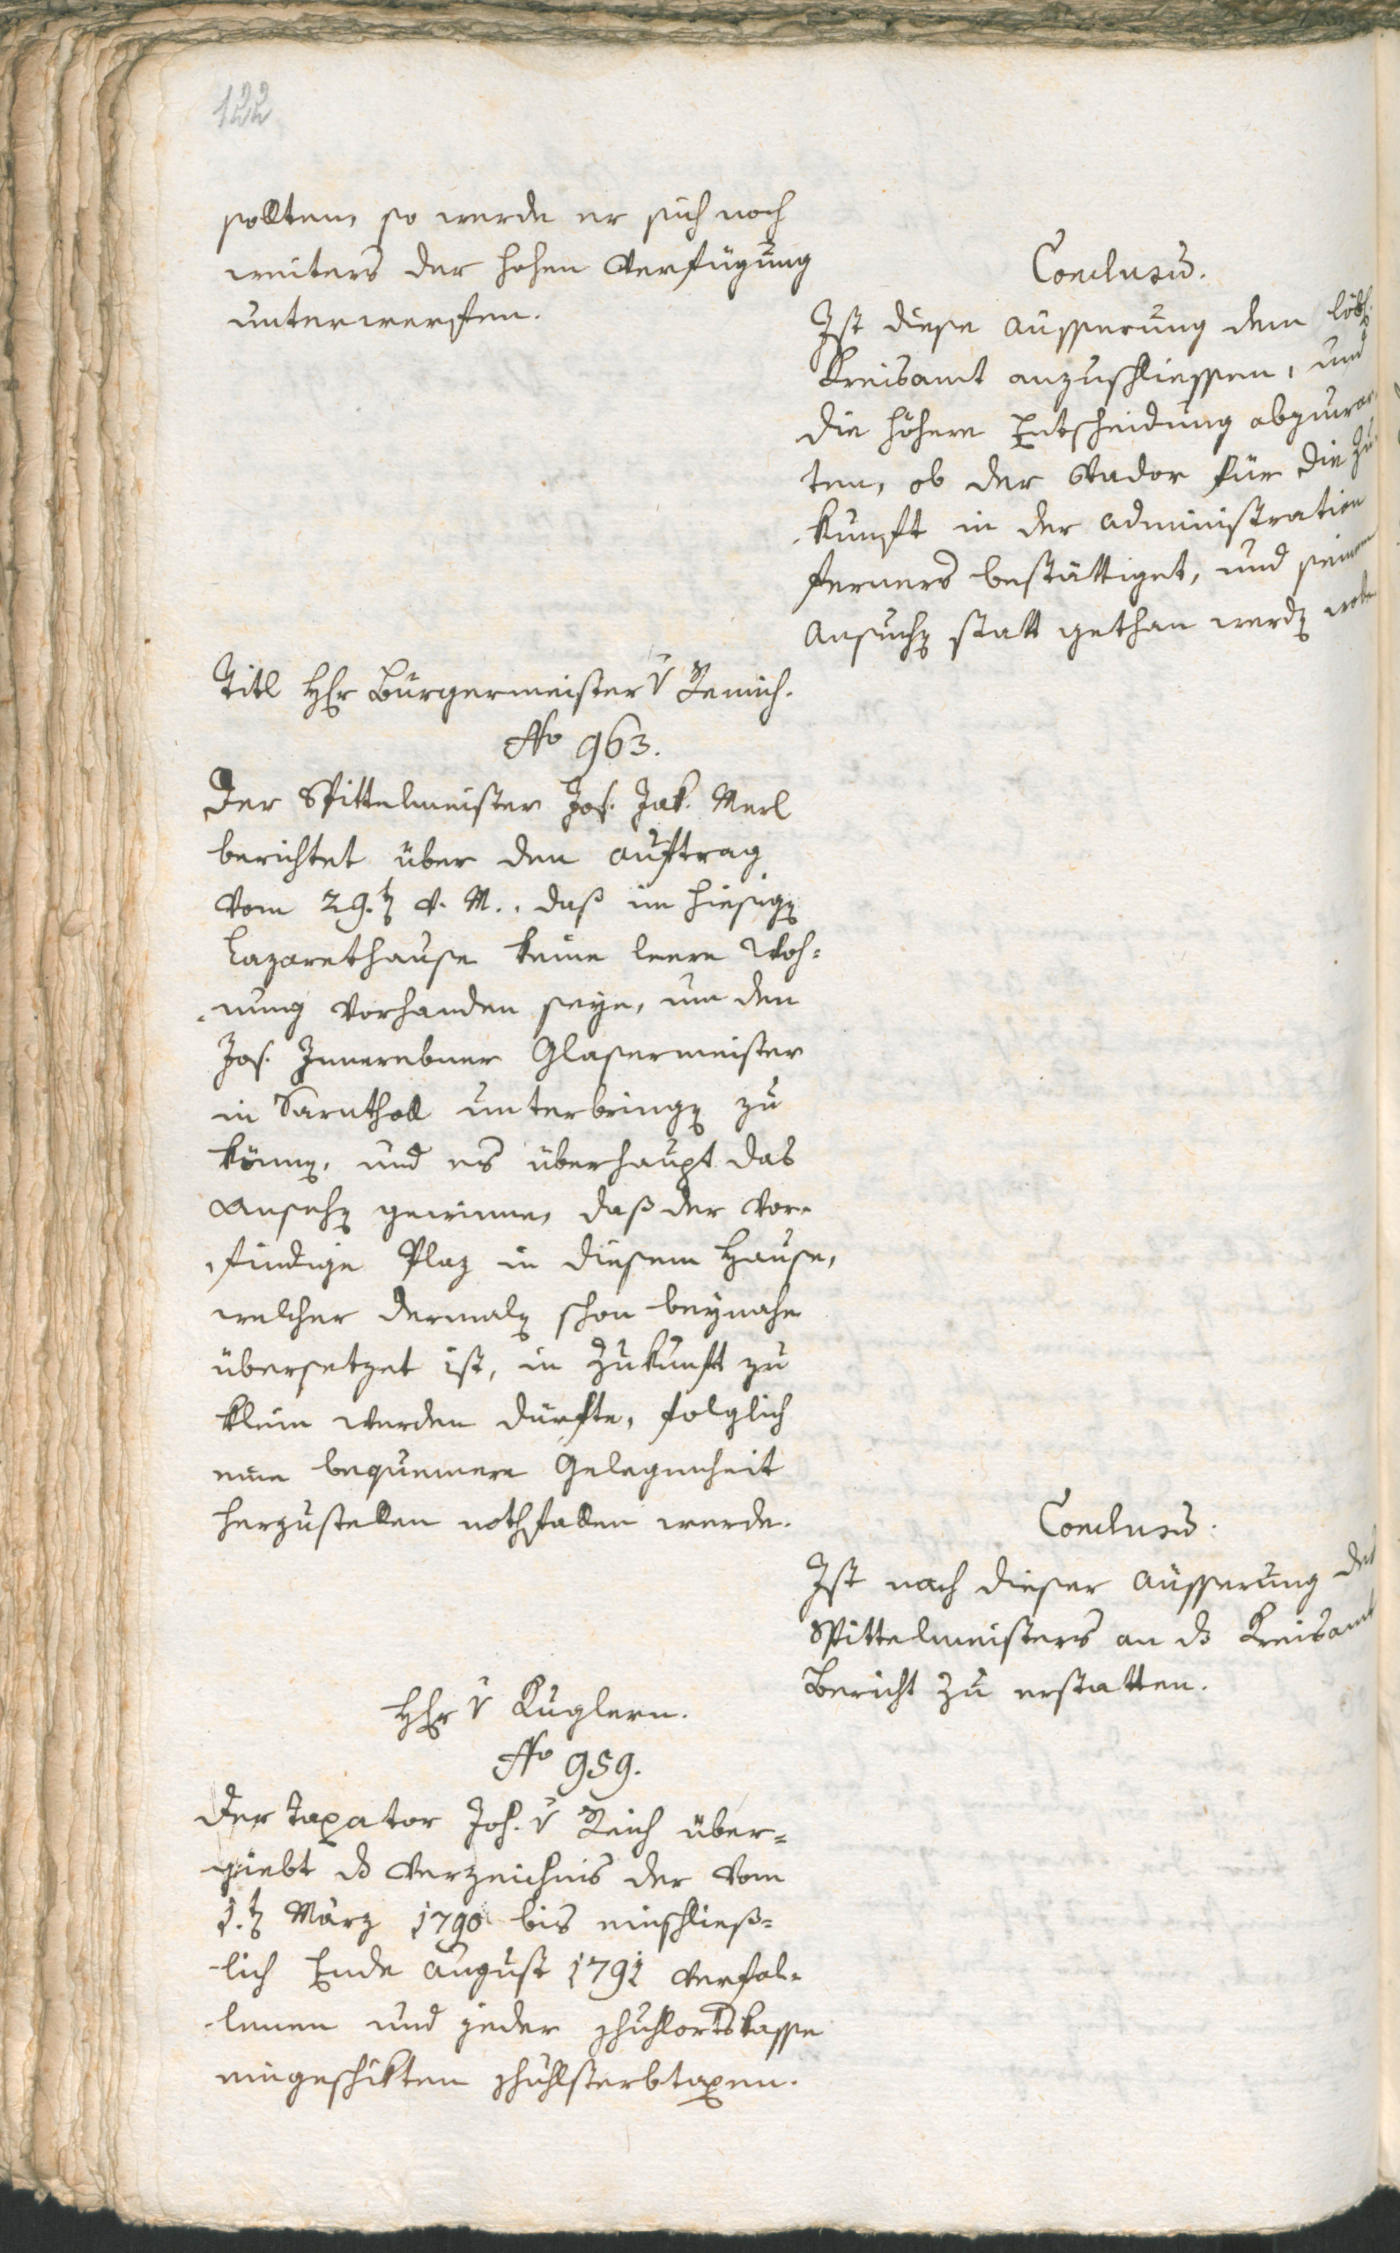 122
sollten, so werde er sich noch
weiters der hohen Verfügung
unterwerfen.
Conclusū.
Ist diese Äusserung dem löbl.
Kreisamt anzuschliessen, und
die höhere Entscheidung abzuwar-
ten, ob der Stador für die Zu-
kunft in der Administration
ferners bestättiget, und seinem
Ansuchen statt gethan werden wolle
Titl Herr Bürgermeister v Remich.
No 963.
Der Spittelmeister Jos. Jak. Merl
berichtet über den Auftrag
vom 29.ten v. M., daß im hiesigen
Lazarethause keine leere Woh=
nung vorhanden seye, um den
Jos. Innerebner Glasermeister
in Sarnthall unterbringen zu
können, und es überhaupt das
Ansehen gewinne, daß der vor-
findige Plaz in diesem Hause,
welcher dermalen schon beynahe
übersetzet ist, in Zukunft zu
klein werden dürfte, folglich
eine bequemere Gelegenheit
herzustellen nothfallen werde.
Conclusū.
Ist nach dieser Äusserung des
Spittelmeisters an das Kreisamt
Bericht zu erstatten.
Herr v Kuglern.
No 959.
Der Taxator Joh. v Reich über=
giebt das Verzeichnis der vom
1.ten März 1790 bis einschließ=
lich Ende August 1791 verfal-
lenen und jeder Schullortskasse
eingeschikten Schullsterbtaxen.